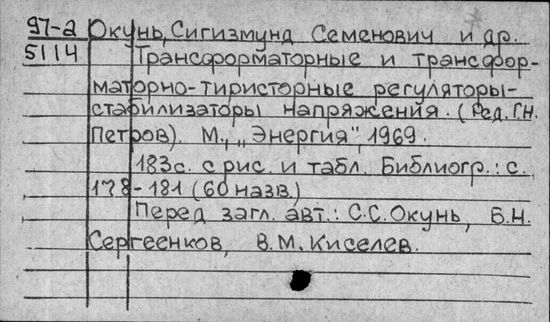 97-2 Окунь, Сигизмунд Семенович и др.
5114 Трансформаторные и трансфор-
маторно-тиристорные регуляторы-
стабилизаторы напряжения. (Ред. Г.Н.
Петров). М., „Энергия", 1969.
183с. с рис. и табл. Библиогр.: с.
178-181 (60 назв.)
Перед загл. авт.: С.С. Окунь, Б.Н.
Сергеенков, В.М. Киселев.